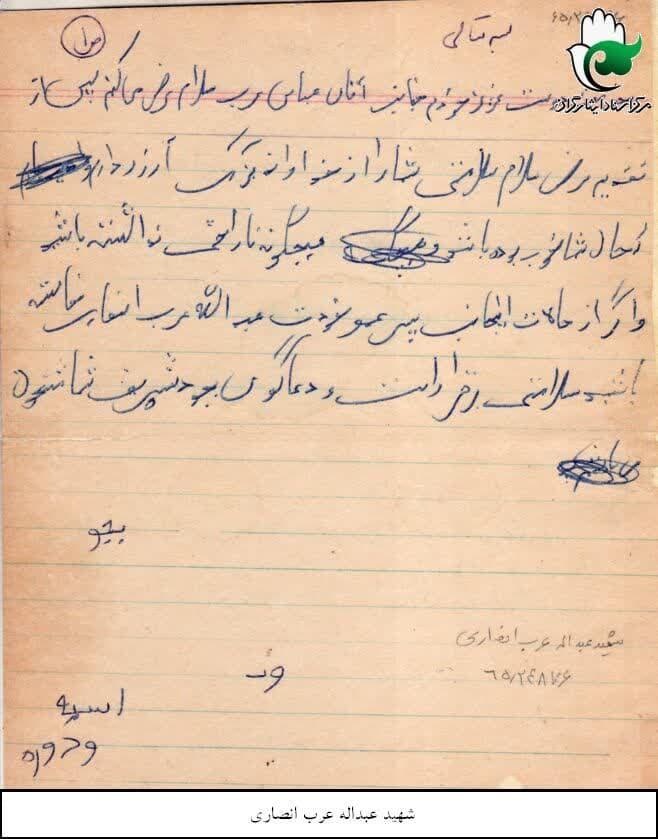 ص ۱
بسمه تعالی
دوست عزیز خودم جناب آقای عباس عرب سلام عرض می کنم پس از
تقدیم عرض سلام سلامتی شما را از خداوند بزرگ آرزو دارم
که حال شما خوب بوده باشد و هیچگونه ناراحتی نداشته باشید
و اگر از حالات اینجانب پسر عمو خودت عبدالله عرب انصاری خواسته
باشید سلامتی برقرار است و دعاگوی وجود شریف شما
شهید عبداله عرب انصاری
۶۵۲۴۸۷۶
شهید عبداله عرب انصاری